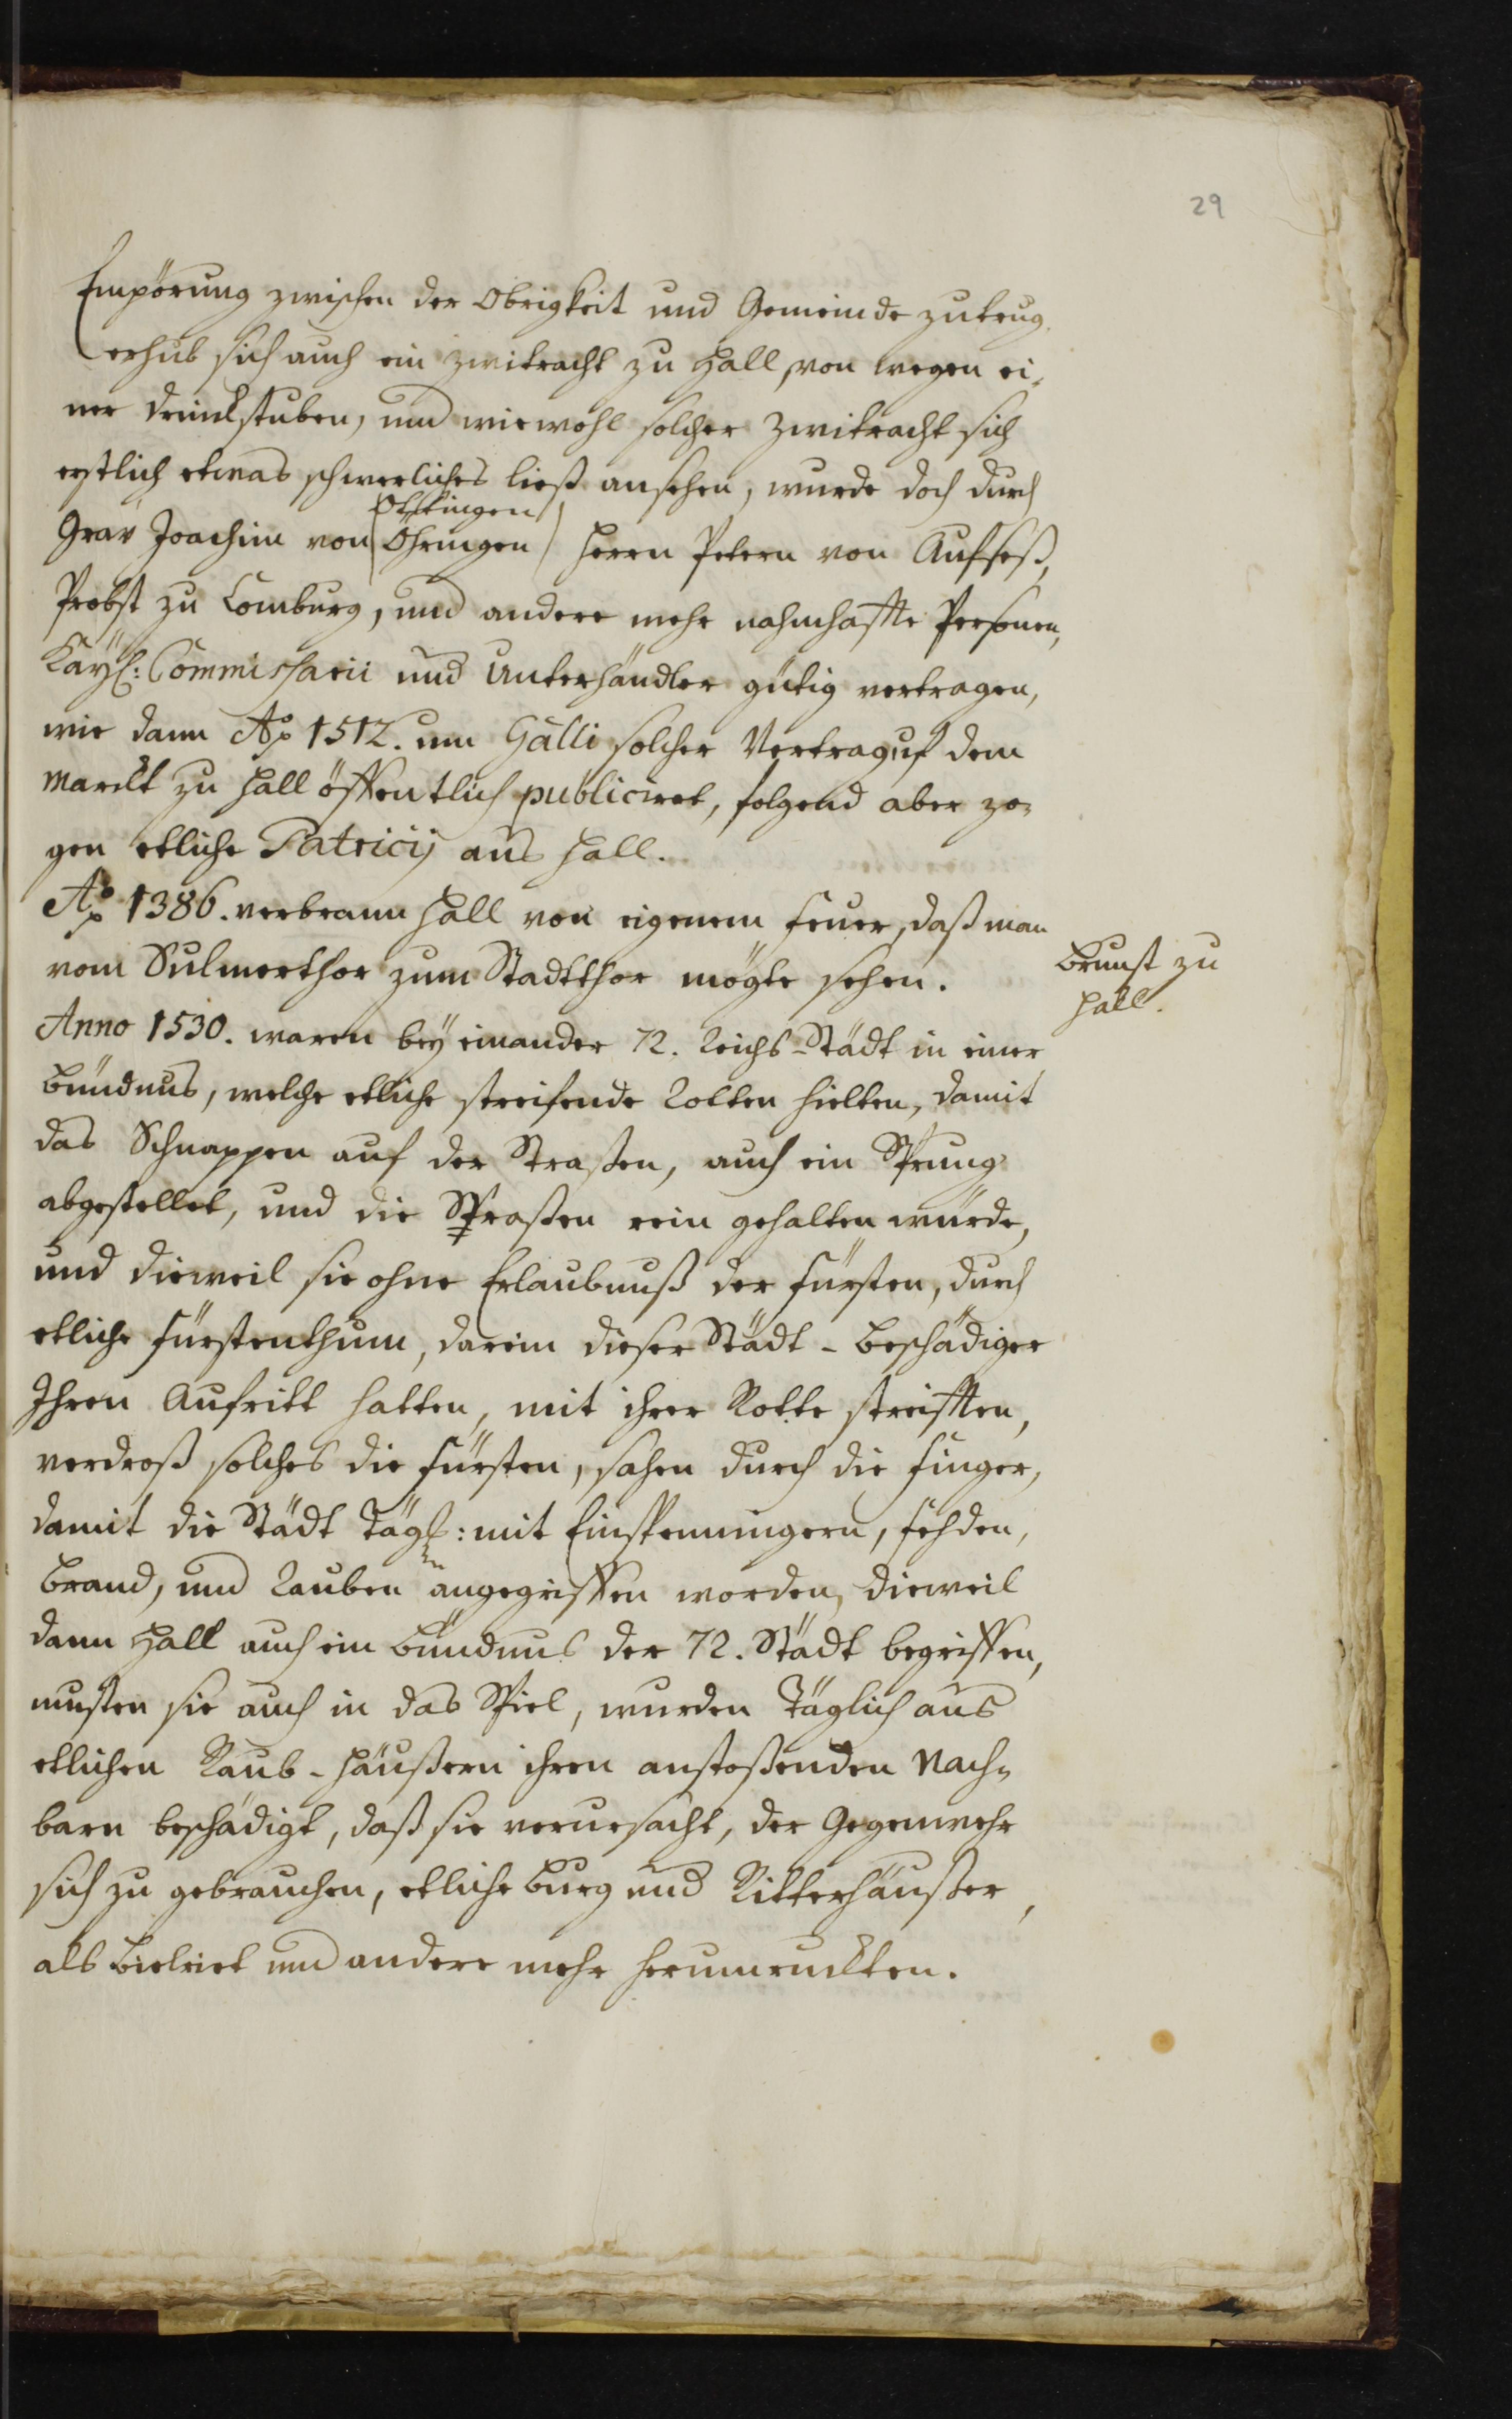 29
Empörung zwischen der Obrigkeit und Gemeinde zutrug,
erhub sich auch ein Zwitracht zu Hall, von wegen ei-
ner Trinckstuben, und wiewohl solcher Zwitracht sich
erstlich etwas schwerliches ließ ansehen, wurde doch durch
Oettingen
Grav Joachim von Öhringen Herrn Petern von Aufseß,
Probst zu Comburg, und andere mehr nahmhaffte Personen,
Kayßl: Commissarii und Unterhändler gütig vertragen,
wie dann Ao 1512. um Galli solcher Vertrag uf dem
Marckt zu Hall öffentlich publiciret, folgend aber zo-
gen etliche Patricij aus Hall.
Ao 1386. verbrann Hall von eigenem Feuer, daß man
vom Sulmerthor zum Stadtthor mögte sehen.
Brunst zu
Hall.
Anno 1530. waren bey einander 72. Reichs-Städt in einer
Bündnus, welche etliche streifende Rotten hielten, damit
das Schnappen auf der Strassen, auch ein Sprung
abgestellet, und die Strassen rein gehalten würde,
und dieweil sie ohne Erlaubnuß der Fürsten, durch
etliche Fürstenthum, darein dieser Städt-Beschädiger
Ihren Aufritt hatten, mit ihrer Rotte streifften,
verdroß solches die Fürsten, sahen durch die Finger,
damit die Städt Tägl: mit Einspennigern, Fehden,
Brand, und Rauben angegriffen worden, dieweil
dann Hall auch ein Bündnus der 72. Städt begriffen,
musten sie auch in das Spiel, wurden Täglich aus
etlichen Raub-Häußern ihren anstoßenden Nach-
barn beschädigt, daß sie verursacht, der Gegenwehr
sich zu gebrauchen, etliche Burg und Ritterhäußer,
als Bielriet und andere mehr herumruckten.